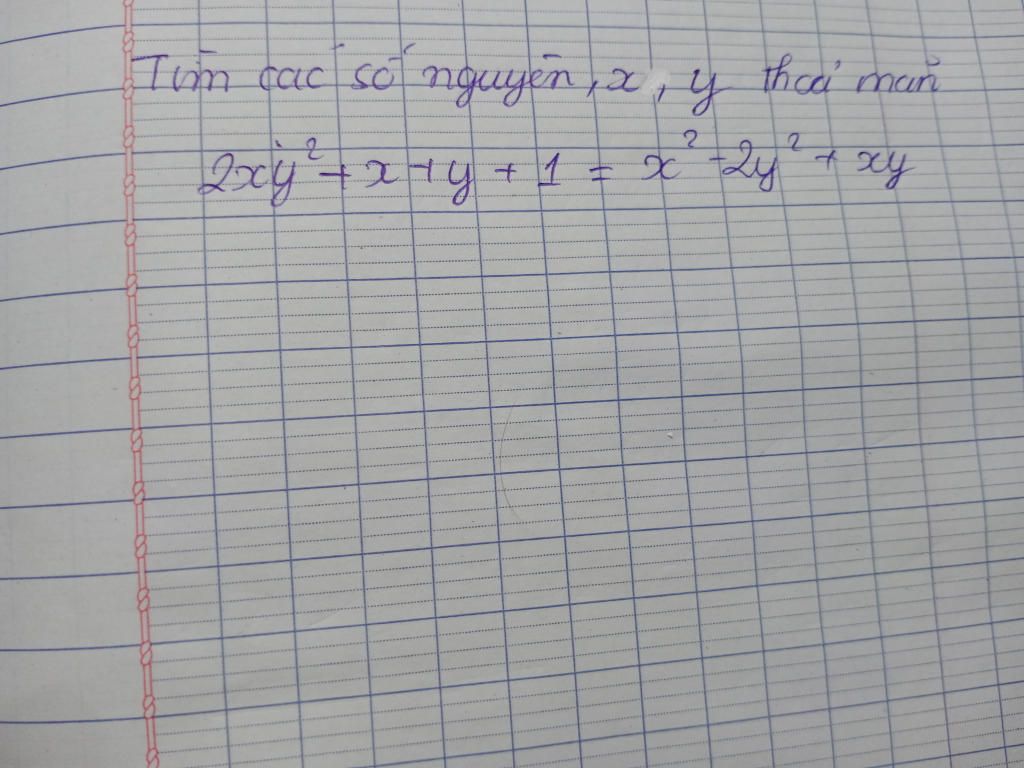 Tìm các số nguyên, x, y thoả mãn
2xy² + x + y + 1 = x² + 2y² + xy